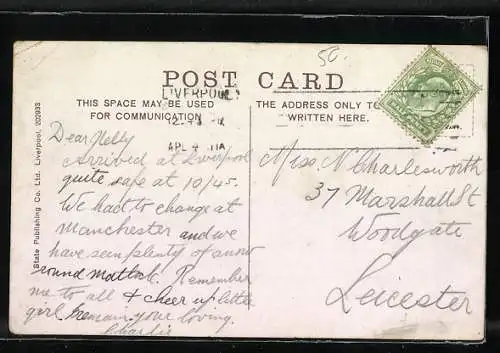 50.
POST CARD
LIVERPOOL
THIS SPACE MAY BE USED
FOR COMMUNICATION
THE ADDRESS ONLY TO
WRITTEN HERE.
State Publishing Co. Ltd. Liverpool,
Dear Nelly
Arrived at Liverpool
quite safe at 10/45.
We had to change at
Manchester and we
have seen plenty of snow
round Matlock. Remember
me to all & cheer up little
girl, remain your loving.
Charlie
Miss. N. Charlesworth
37 Marshall St
Woodgate
Leicester